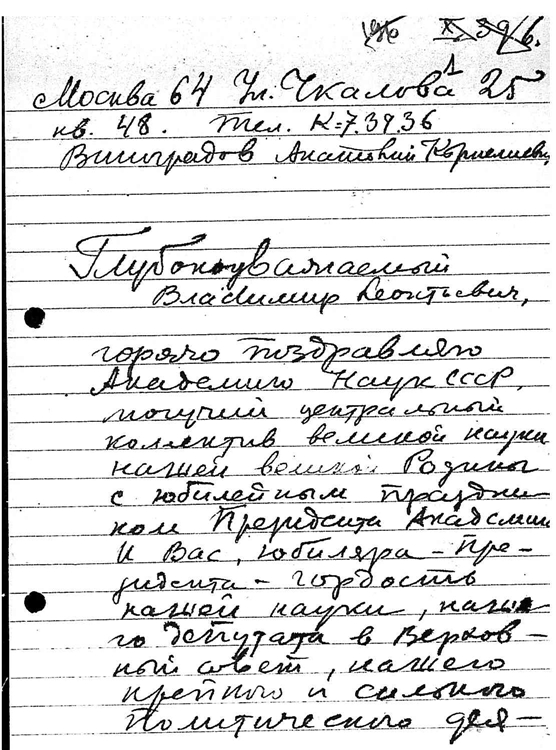 Х. 39 г.
Москва 64 Ул. Чкалова 25
кв. 48. Тел. К-7.39.36
Виноградов Анатолий Корнелиевич
Глубокоуважаемый
Владимир Леонтьевич,
горячо поздравляю
Академию Наук СССР,
могучий центральный
коллектив великой науки
нашей великой Родины
с юбилейным праздни-
ком Президента Академии
и Вас, юбиляра - пре-
зидента - гордость
нашей науки, наше
го депутата в Верхов-
ный совет, нашего
крепкого и сильного
политического дея-